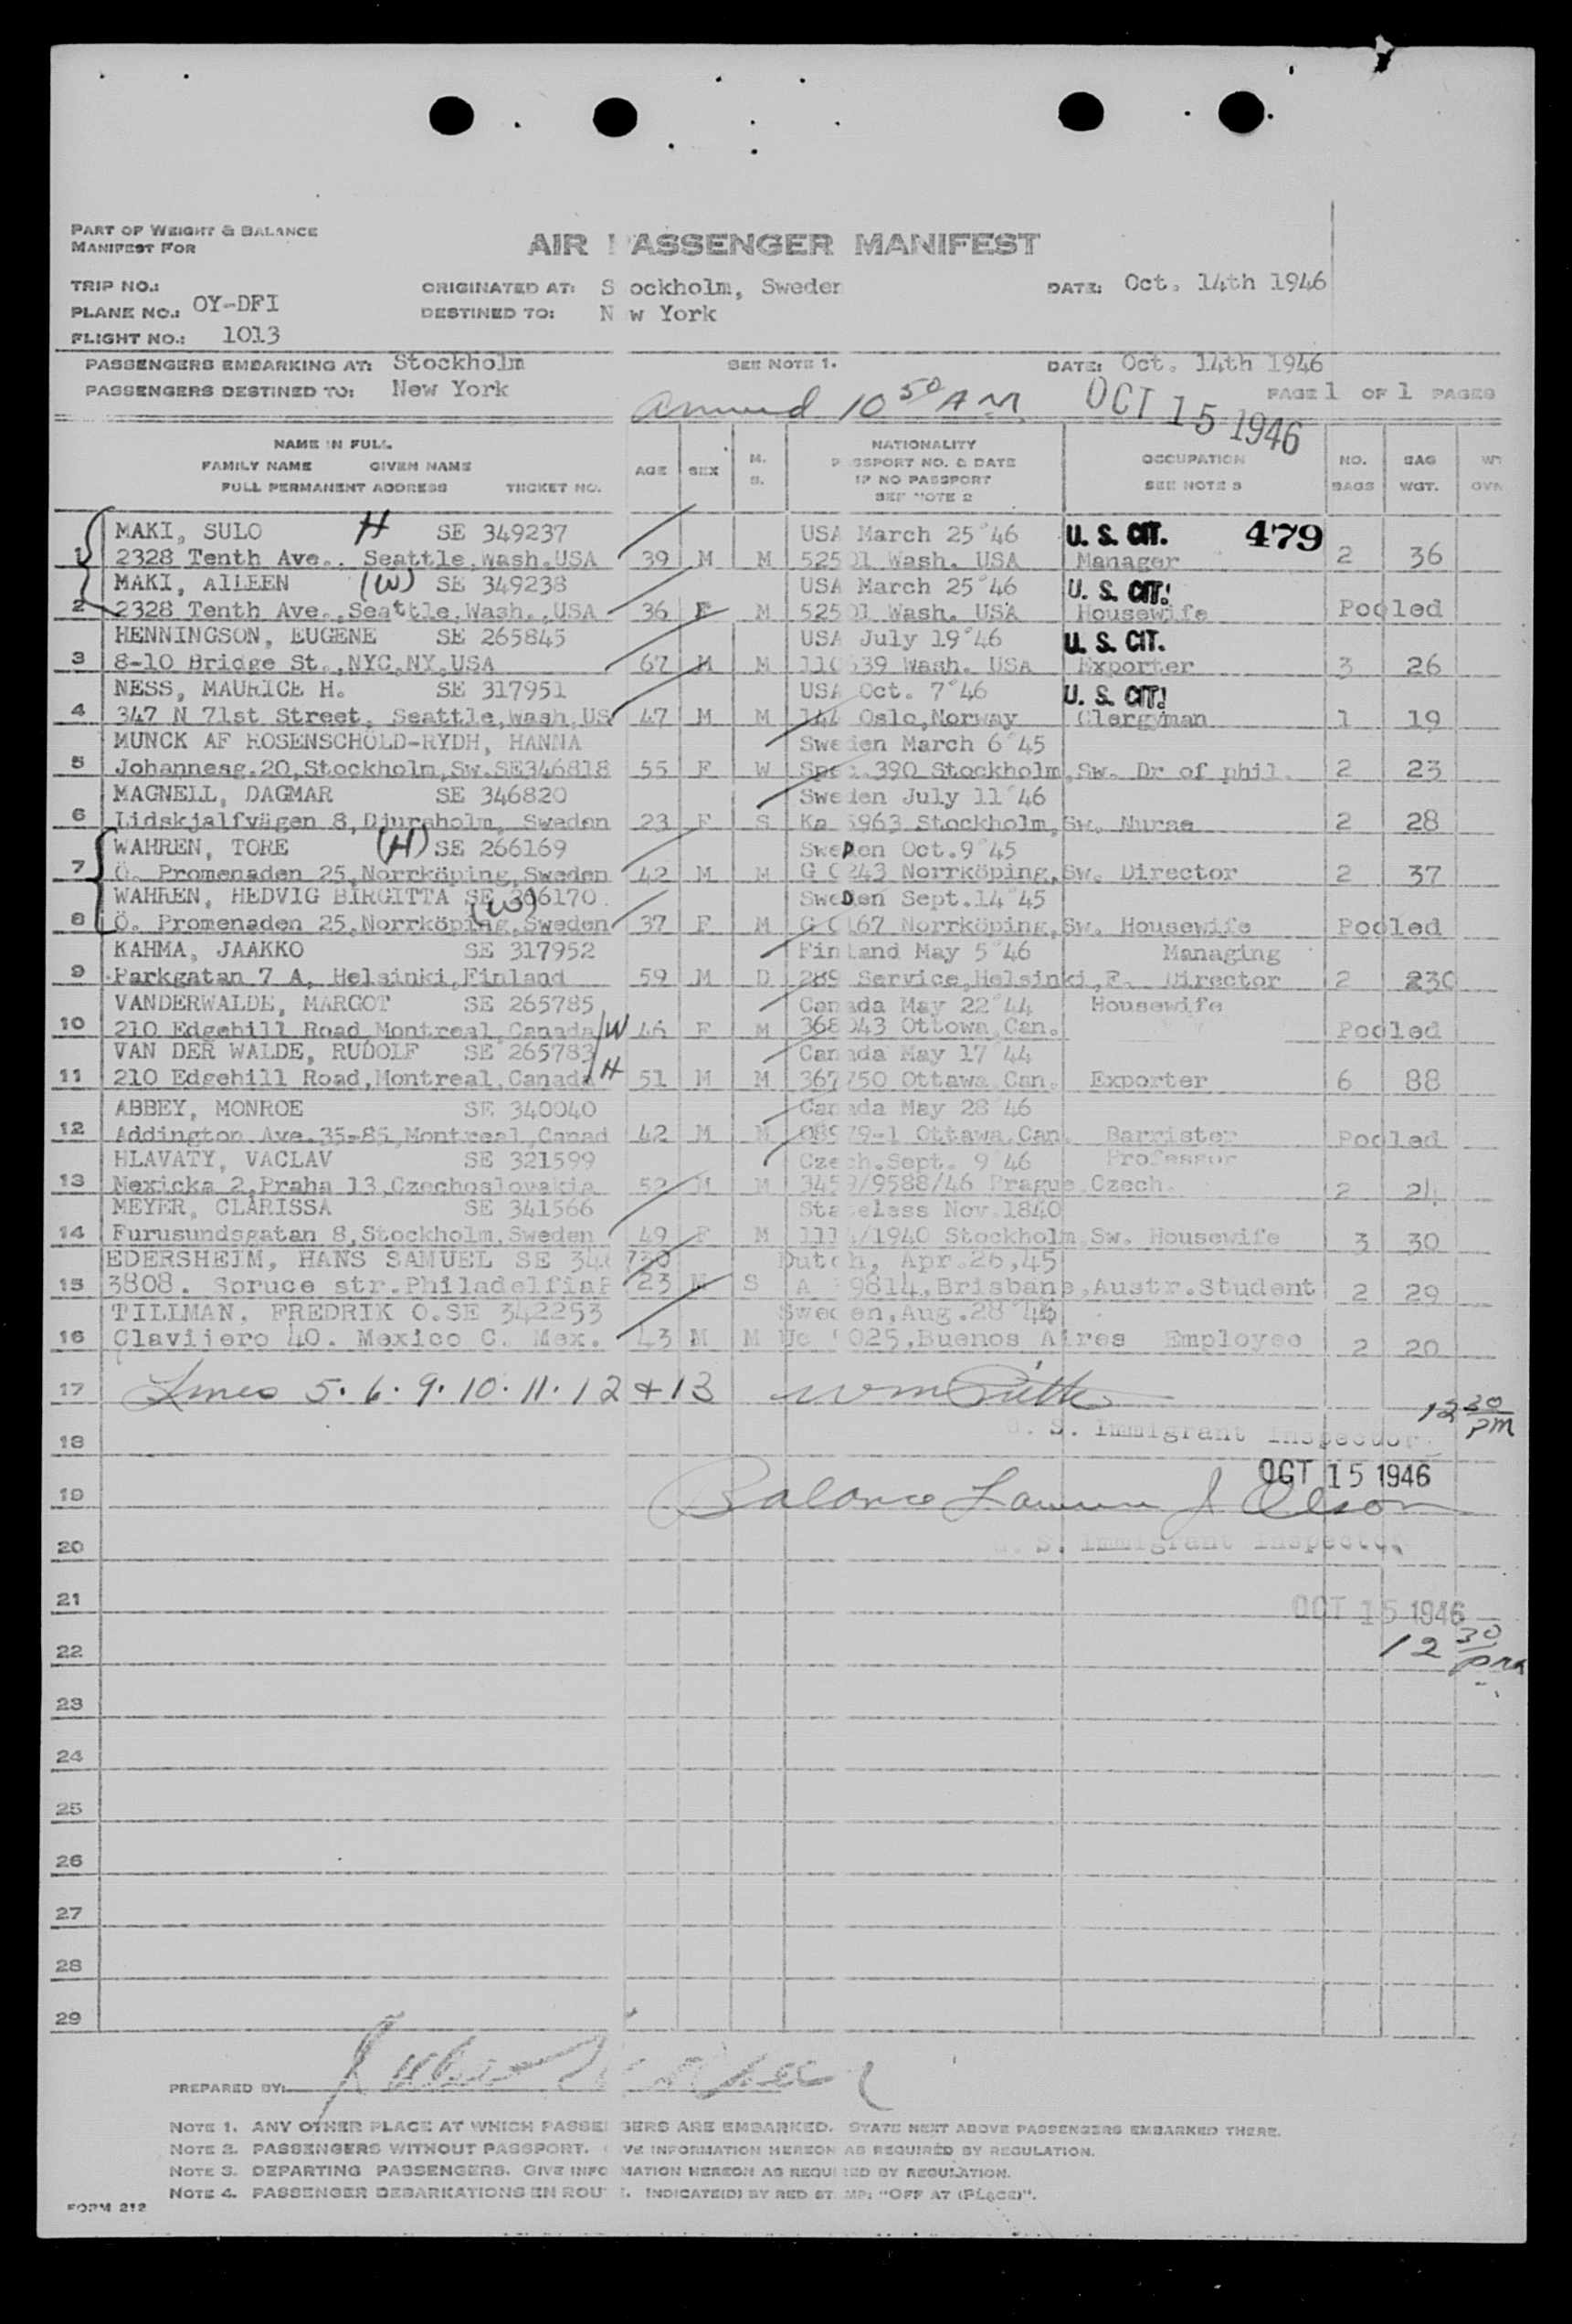 PART OF WEIGHT & BALANCE
MANIFEST FOR
AIR PASSENGER MANIFEST
TRIP NO.: ORIGINATED AT: S ockholm, Sweden DATE: Oct. 14th 1946
PLANE NO.: OY-DFI DESTINED TO: N w York
FLIGHT NO.: 1013
PASSENGERS EMBARKING AT: Stockholm SEE NOTE 1. DATE: Oct. 14th 1946
PASSENGERS DESTINED TO: New York PAGE 1 OF 1 PAGES
Arrived 10 50 AM OCT 15 1946
NAME IN FULL
FAMILY NAME GIVEN NAME
FULL PERMANENT ADDRESS TICKET NO.
AGE SEX M. S.
NATIONALITY
PASSPORT NO. & DATE
IF NO PASSPORT
SEE NOTE 2
OCCUPATION
SEE NOTE 3
NO. BAGS
BAG WGT.
MAKI, SULO H SE 349237 USA March 25'46 U. S. CIT. 479
1 2328 Tenth Ave., Seattle,Wash.USA 39 M M 525 1 Wash. USA Manager 2 36
MAKI, AILEEN (W) SE 349238 USA March 25'46 U. S. CIT.
2 2328 Tenth Ave.,Seattle,Wash.,USA 36 F M 525 1 Wash. USA Housewife Pooled
HENNINGSON, EUGENE SE 265845 USA July 19'46 U. S. CIT.
3 8-10 Bridge St.,NYC,NY,USA 67 M M 110 39 Wash. USA Exporter 3 26
NESS, MAURICE H. SE 317951 USA Oct. 7'46 U. S. CIT.
4 347 N 71st Street, Seattle,Wash US 47 M M 144 Oslo,Norway Clergyman 1 19
MUNCK AF ROSENSCHOLD-RYDH, HANNA Sweden March 6'45
5 Johannesg.20,Stockholm,Sw.SE346818 55 F W Spec.390 Stockholm,Sw. Dr of phil. 2 23
MAGNELL, DAGMAR SE 346820 Sweden July 11'46
6 Lidskjalfvägen 8,Djursholm, Sweden 23 F S Ka 5963 Stockholm,Sw. Nurse 2 28
WAHREN, TORE (H) SE 266169 Sweden Oct.9'45
7 Ö. Promenaden 25,Norrköping,Sweden 42 M M G 0243 Norrköping,Sw. Director 2 37
WAHREN, HEDVIG BIRGITTA SE 266170 Sweden Sept.14'45
(W)
8 Ö. Promenaden 25,Norrköping,Sweden 37 F M G 0167 Norrköping,Sw. Housewife Pooled
KAHMA, JAAKKO SE 317952 Finland May 5'46 Managing
9 Parkgatan 7 A, Helsinki,Finland 59 M D 289 Service,Helsinki,F. Director 2 230
VANDERWALDE, MARGOT SE 265785 Canada May 22'44 Housewife
10 210 Edgehill Road,Montreal,Canada W 46 F M 368 043 Ottowa,Can. Pooled
VAN DER WALDE, RUDOLF SE 265783 Canada May 17'44
11 210 Edgehill Road,Montreal,Canada H 51 M M 367 750 Ottawa Can. Exporter 6 88
ABBEY, MONROE SE 340040 Canada May 28'46
12 Addington Ave.35-85,Montreal,Canad 42 M M 08979-1 Ottawa,Can. Barrister Pooled
HLAVATY, VACLAV SE 321599 Czech.Sept. 9'46 Professor
13 Mexicka 2,Praha 13,Czechoslovakia 52 M M 3459/9588/46 Prague Czech. 2 24
MEYER, CLARISSA SE 341566 Stateless Nov.1840
14 Furusundsgatan 8,Stockholm,Sweden 49 F M 111 /1940 Stockholm,Sw. Housewife 3 30
EDERSHEIM, HANS SAMUEL SE 34 730 Dutch, Apr.26,45
15 3808. Spruce str.Philadelfia 23 M S A 9814,Brisbane,Austr.Student 2 29
TILLMAN, FREDRIK O.SE 342253 Sweden,Aug.28'46
16 Clavijero 40. Mexico C. Mex. 43 M M 025,Buenos Aires Employee 2 20
17 Lines 5. 6. 9. 10. 11. 12 & 13
12 30 PM
18 U. S. Immigrant Inspector
OCT 15 1946
19 Balance
20 U. S. Immigrant Inspector
21 OCT 15 1946
22 12 30 pm
23
24
25
26
27
28
29
PREPARED BY:
NOTE 1. ANY OTHER PLACE AT WHICH PASSENGERS ARE EMBARKED. STATE NEXT ABOVE PASSENGERS EMBARKED THERE.
NOTE 2. PASSENGERS WITHOUT PASSPORT. GIVE INFORMATION HEREON AS REQUIRED BY REGULATION.
NOTE 3. DEPARTING PASSENGERS. GIVE INFORMATION HEREON AS REQUIRED BY REGULATION.
NOTE 4. PASSENGER DEBARKATIONS EN ROUTE. INDICATE(D) BY RED STAMP: "OFF AT (PLACE)".
FORM 212